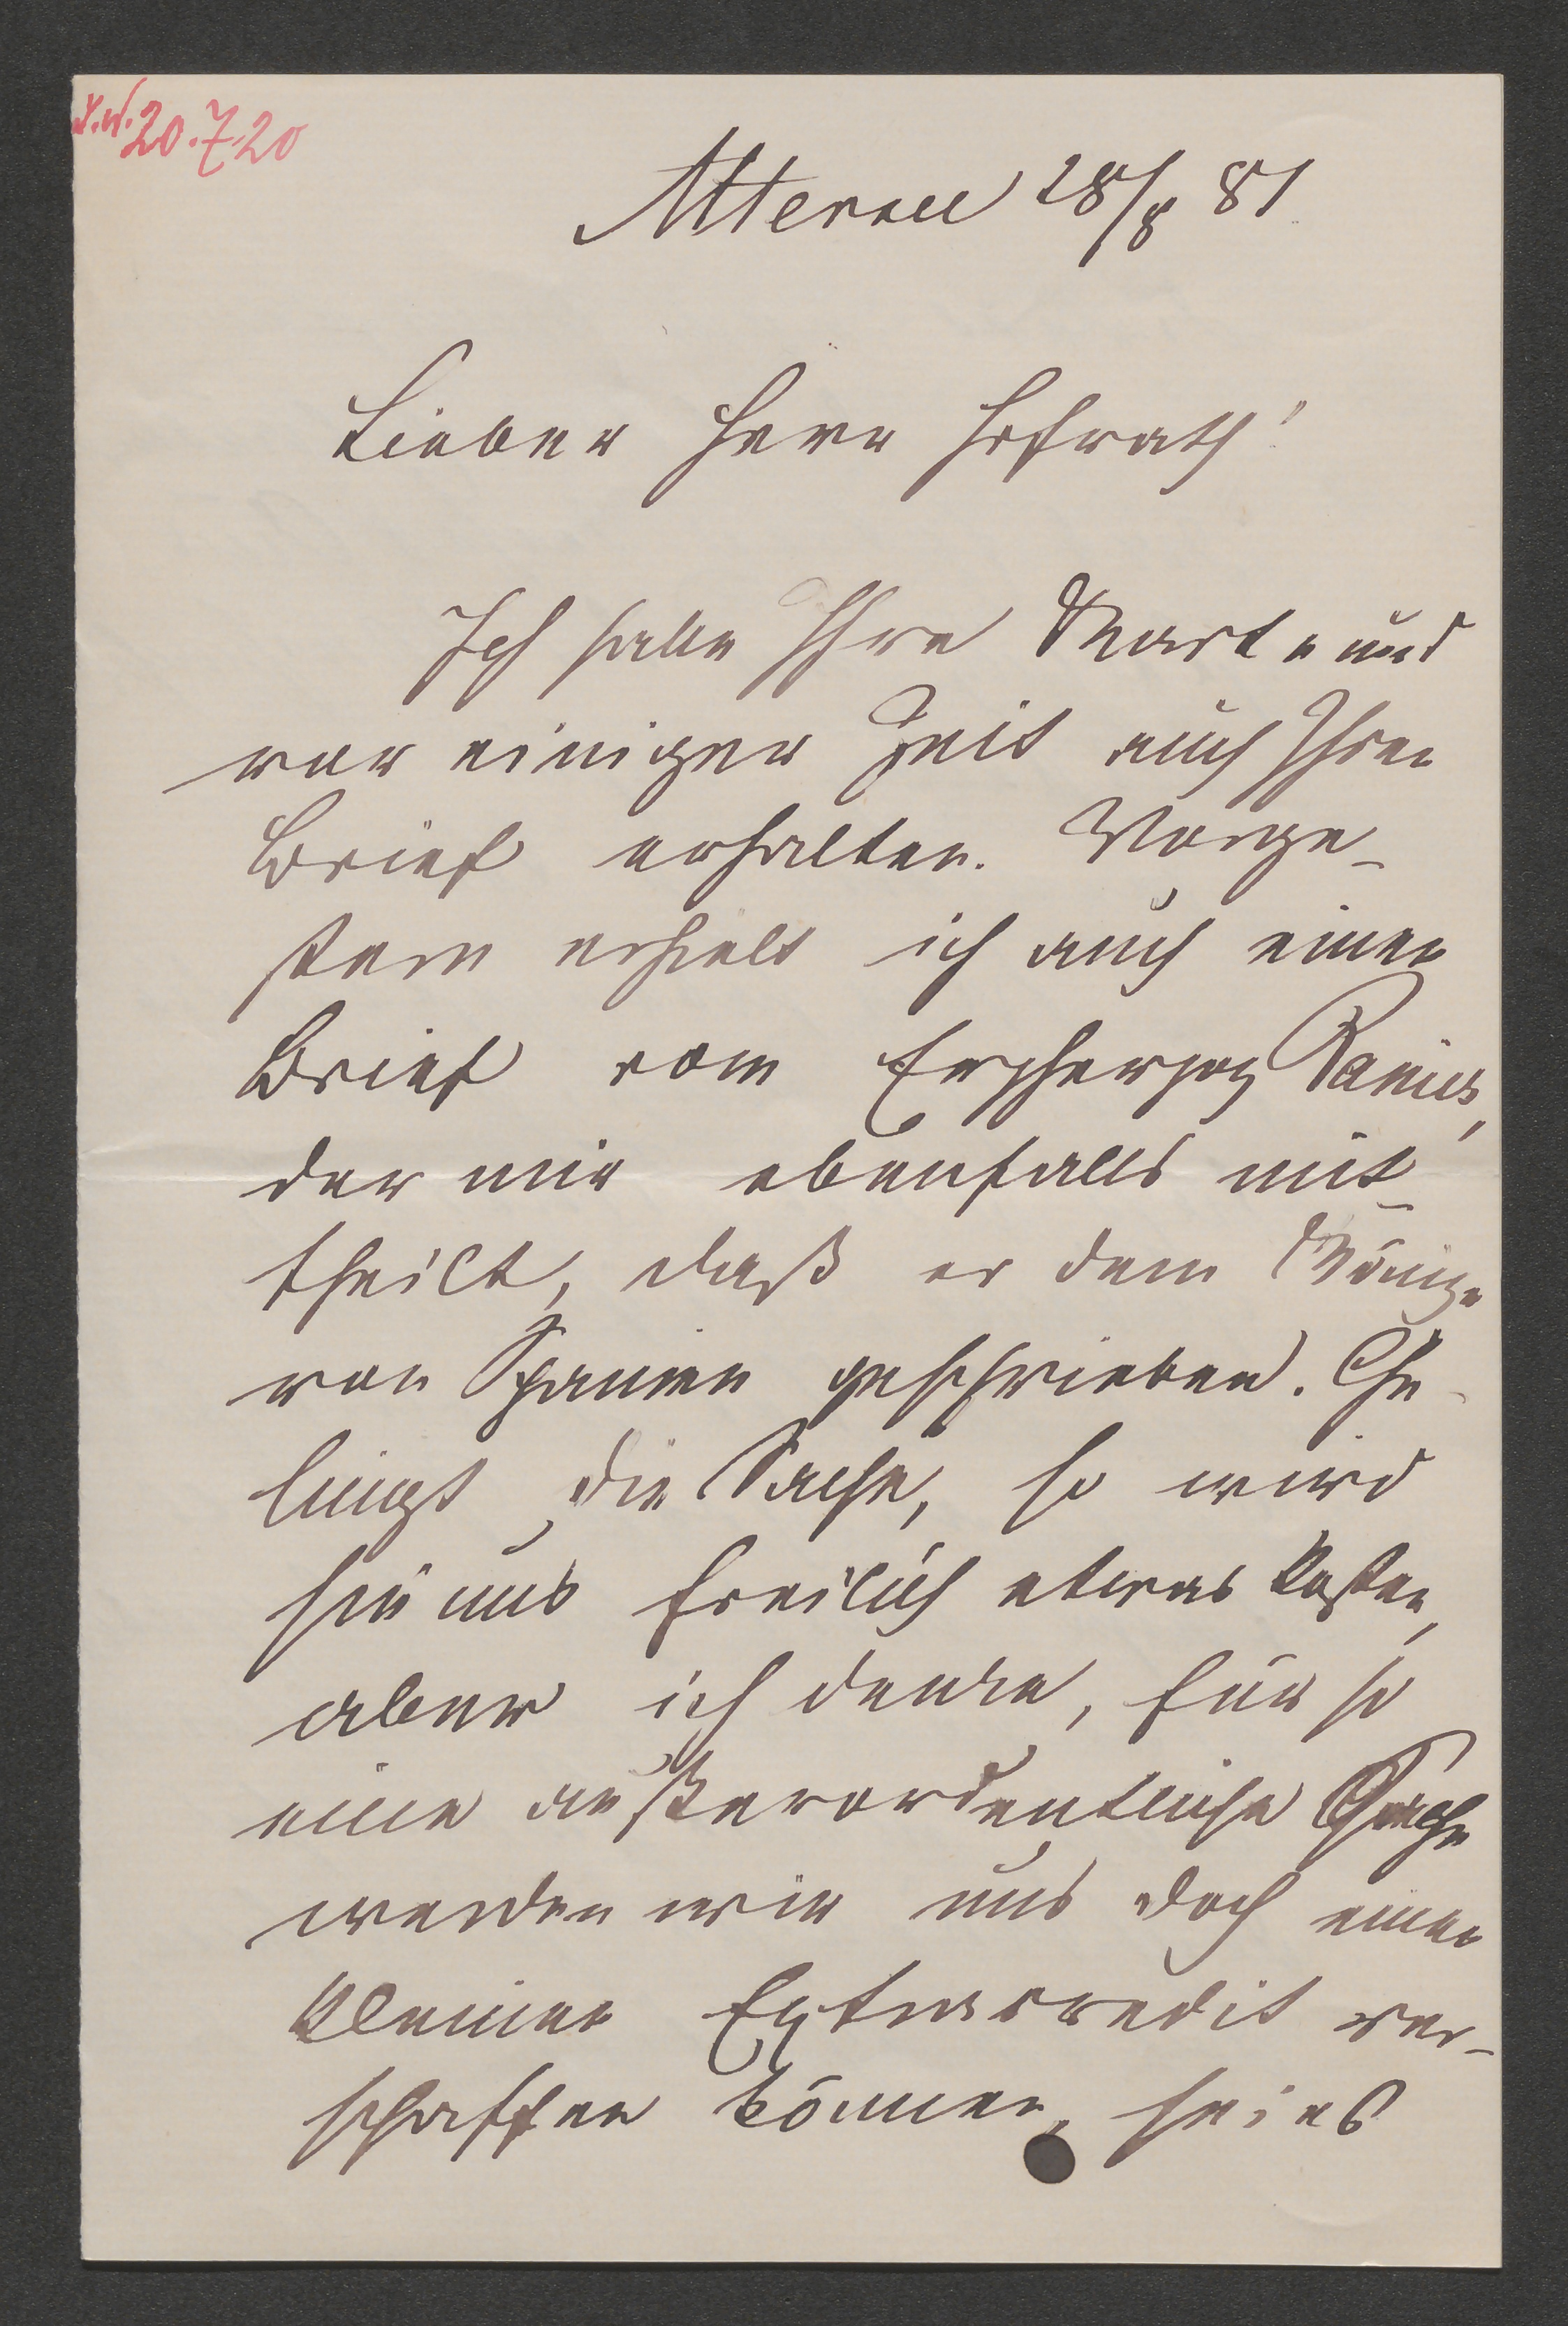 I.N. 20.720
Attersee 28/8 81
Lieber Herr Hofrath!
Ich habe Ihre Karte und
vor einiger Zeit auch Ihren
Brief erhalten. Vorge-
stern erhielt ich auch einen
Brief vom Erzherzog Rainer,
der mir ebenfalls mit-
theilt, daß er dem Könige
von Spanien geschrieben. Ge-
lingt die Sache, so wird
sie uns freilich etwas kosten,
aber ich denke, für so
eine außerordentliche Sache
werden wir uns doch einen
kleinen Extracredit ver-
schaffen können, sei es